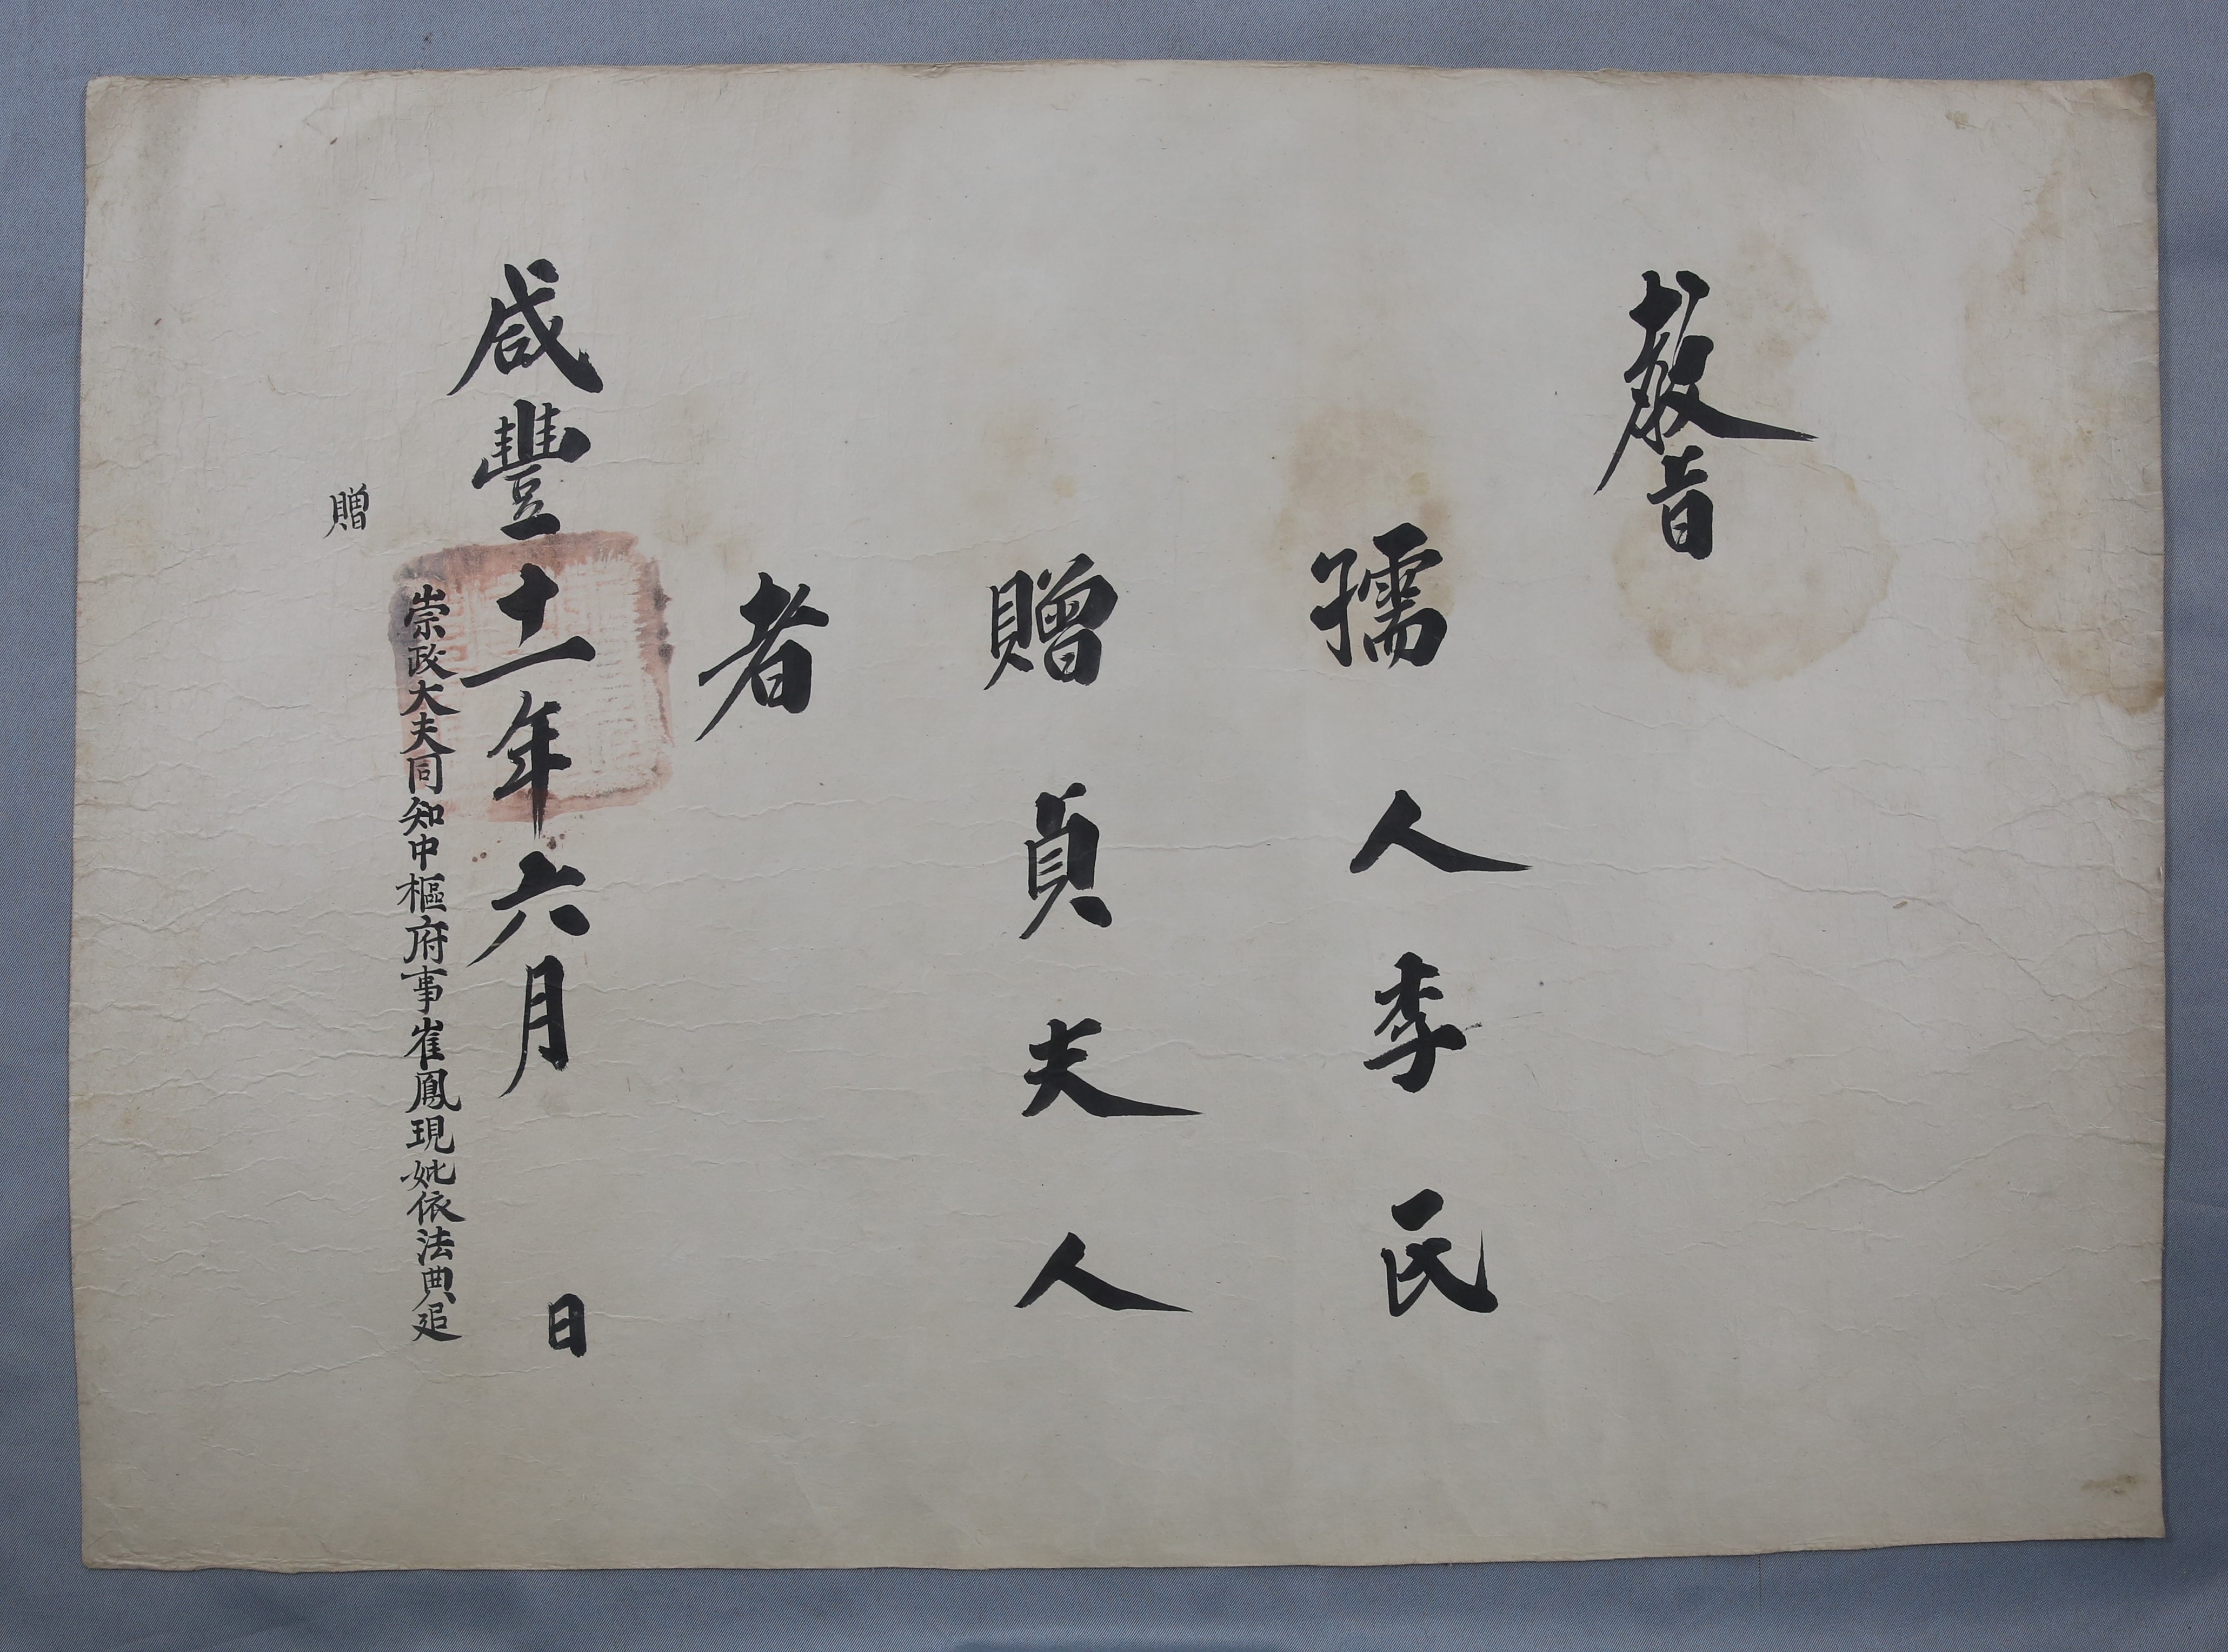 敎旨
孺人李氏
贈貞夫人
者
咸豐十一年六月 日
崇政大夫同知中樞府事崔鳳現妣依法典追
贈